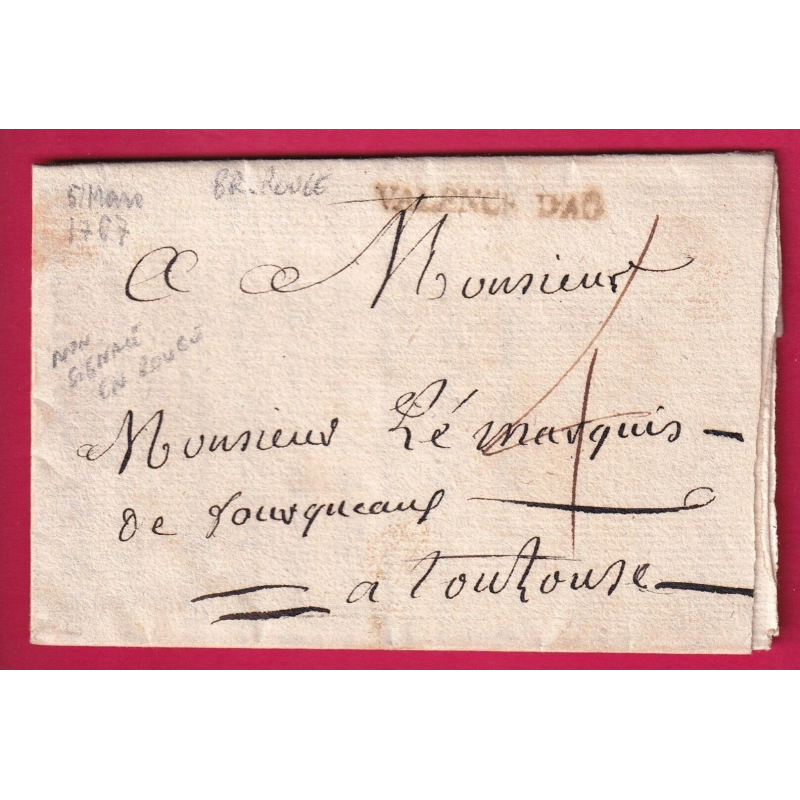 5/Mars
1787
BR-ROUGE
VALENCE D'AG
A Monsieur
NON
SIGNALÉ
EN ROUGE
4
Monsieur Lé marquis
de fourqueaux
a toulouse